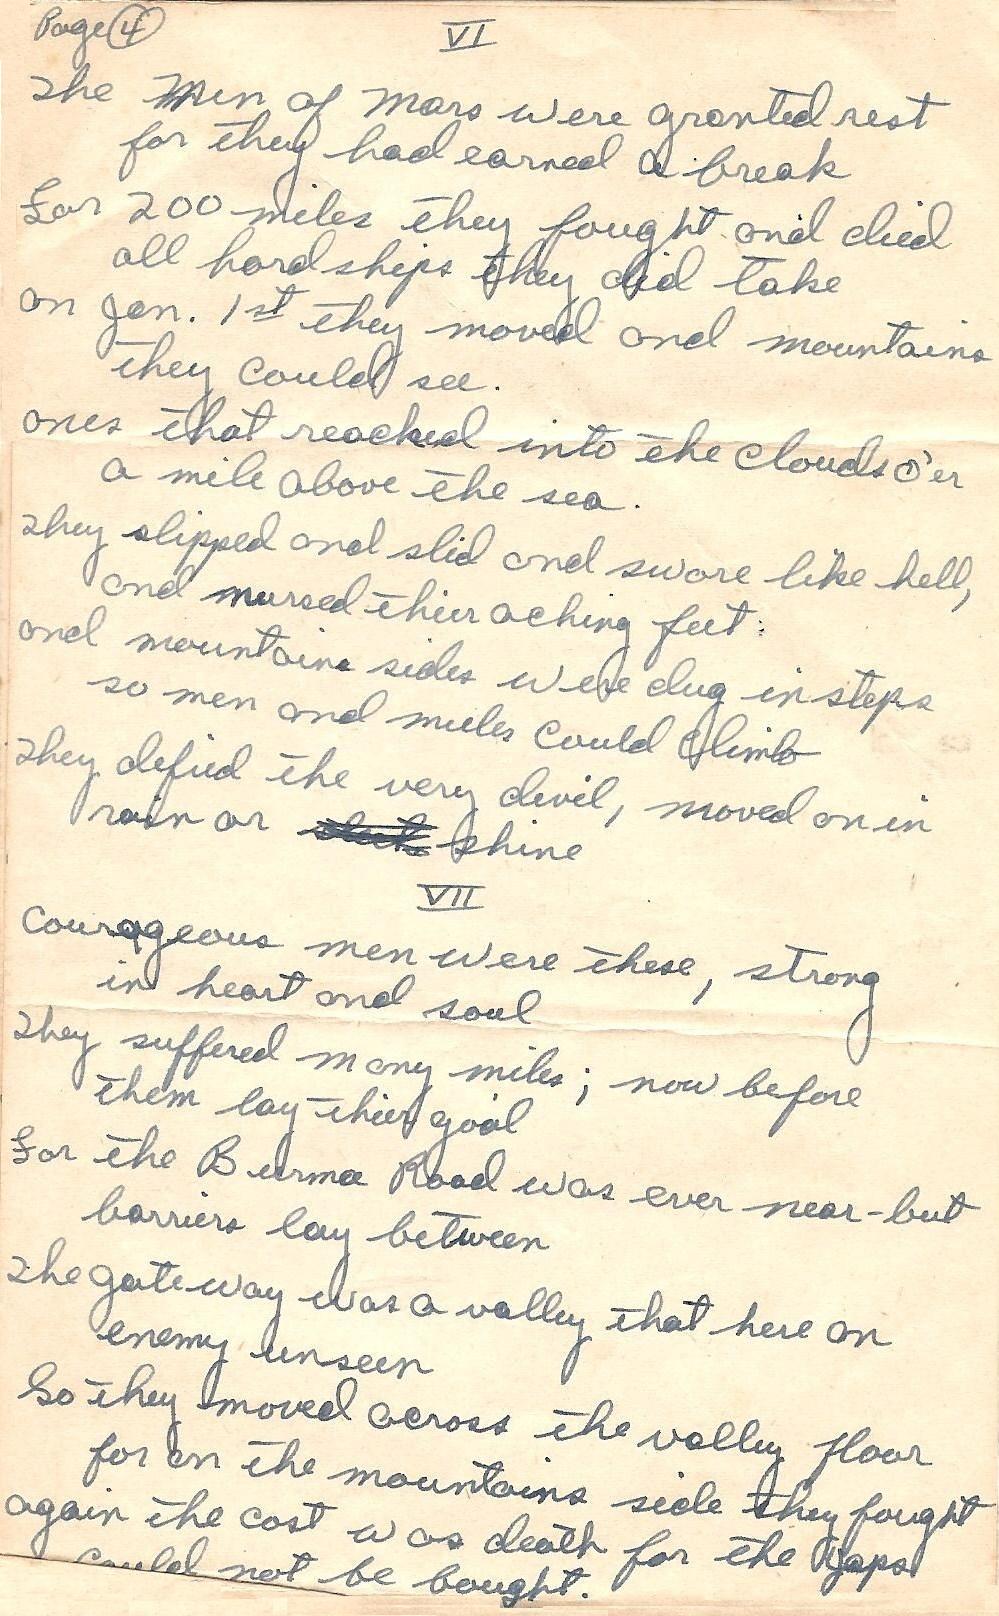 Page 4
VI
The Men of Mars were granted rest
for they had earned a break
For 200 miles they fought and died
all hardships they did take
on Jan. 1st they moved and mountains
they could see.
ones that reached into the clouds o'er
a mile above the sea.
They slipped and slid and swore like hell,
and nursed thier aching feet.
and mountains sides were dug in steps
so men and mules could climb
They defied the very devil, moved on in
rain or shine
VII
Courageous men were these, strong
in heart and soul
They suffered many miles; now before
them lay thier goal
For the Burma Road was ever near-but
barriers lay between
The gateway was a valley that here an
enemy unseen
So they moved across the valley floor
for on the mountains side they fought
again the cost was death for the Japs
could not be bought.